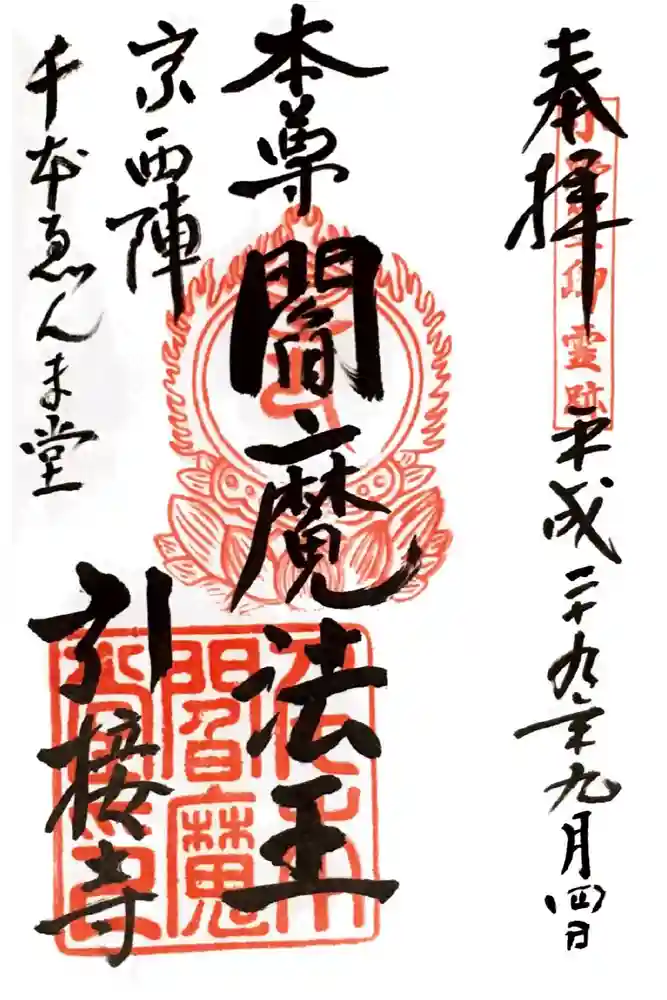 奉拝
平成二十九年九月四日
本尊
閻魔法王
京西陣
千本ゑんま堂
引接寺